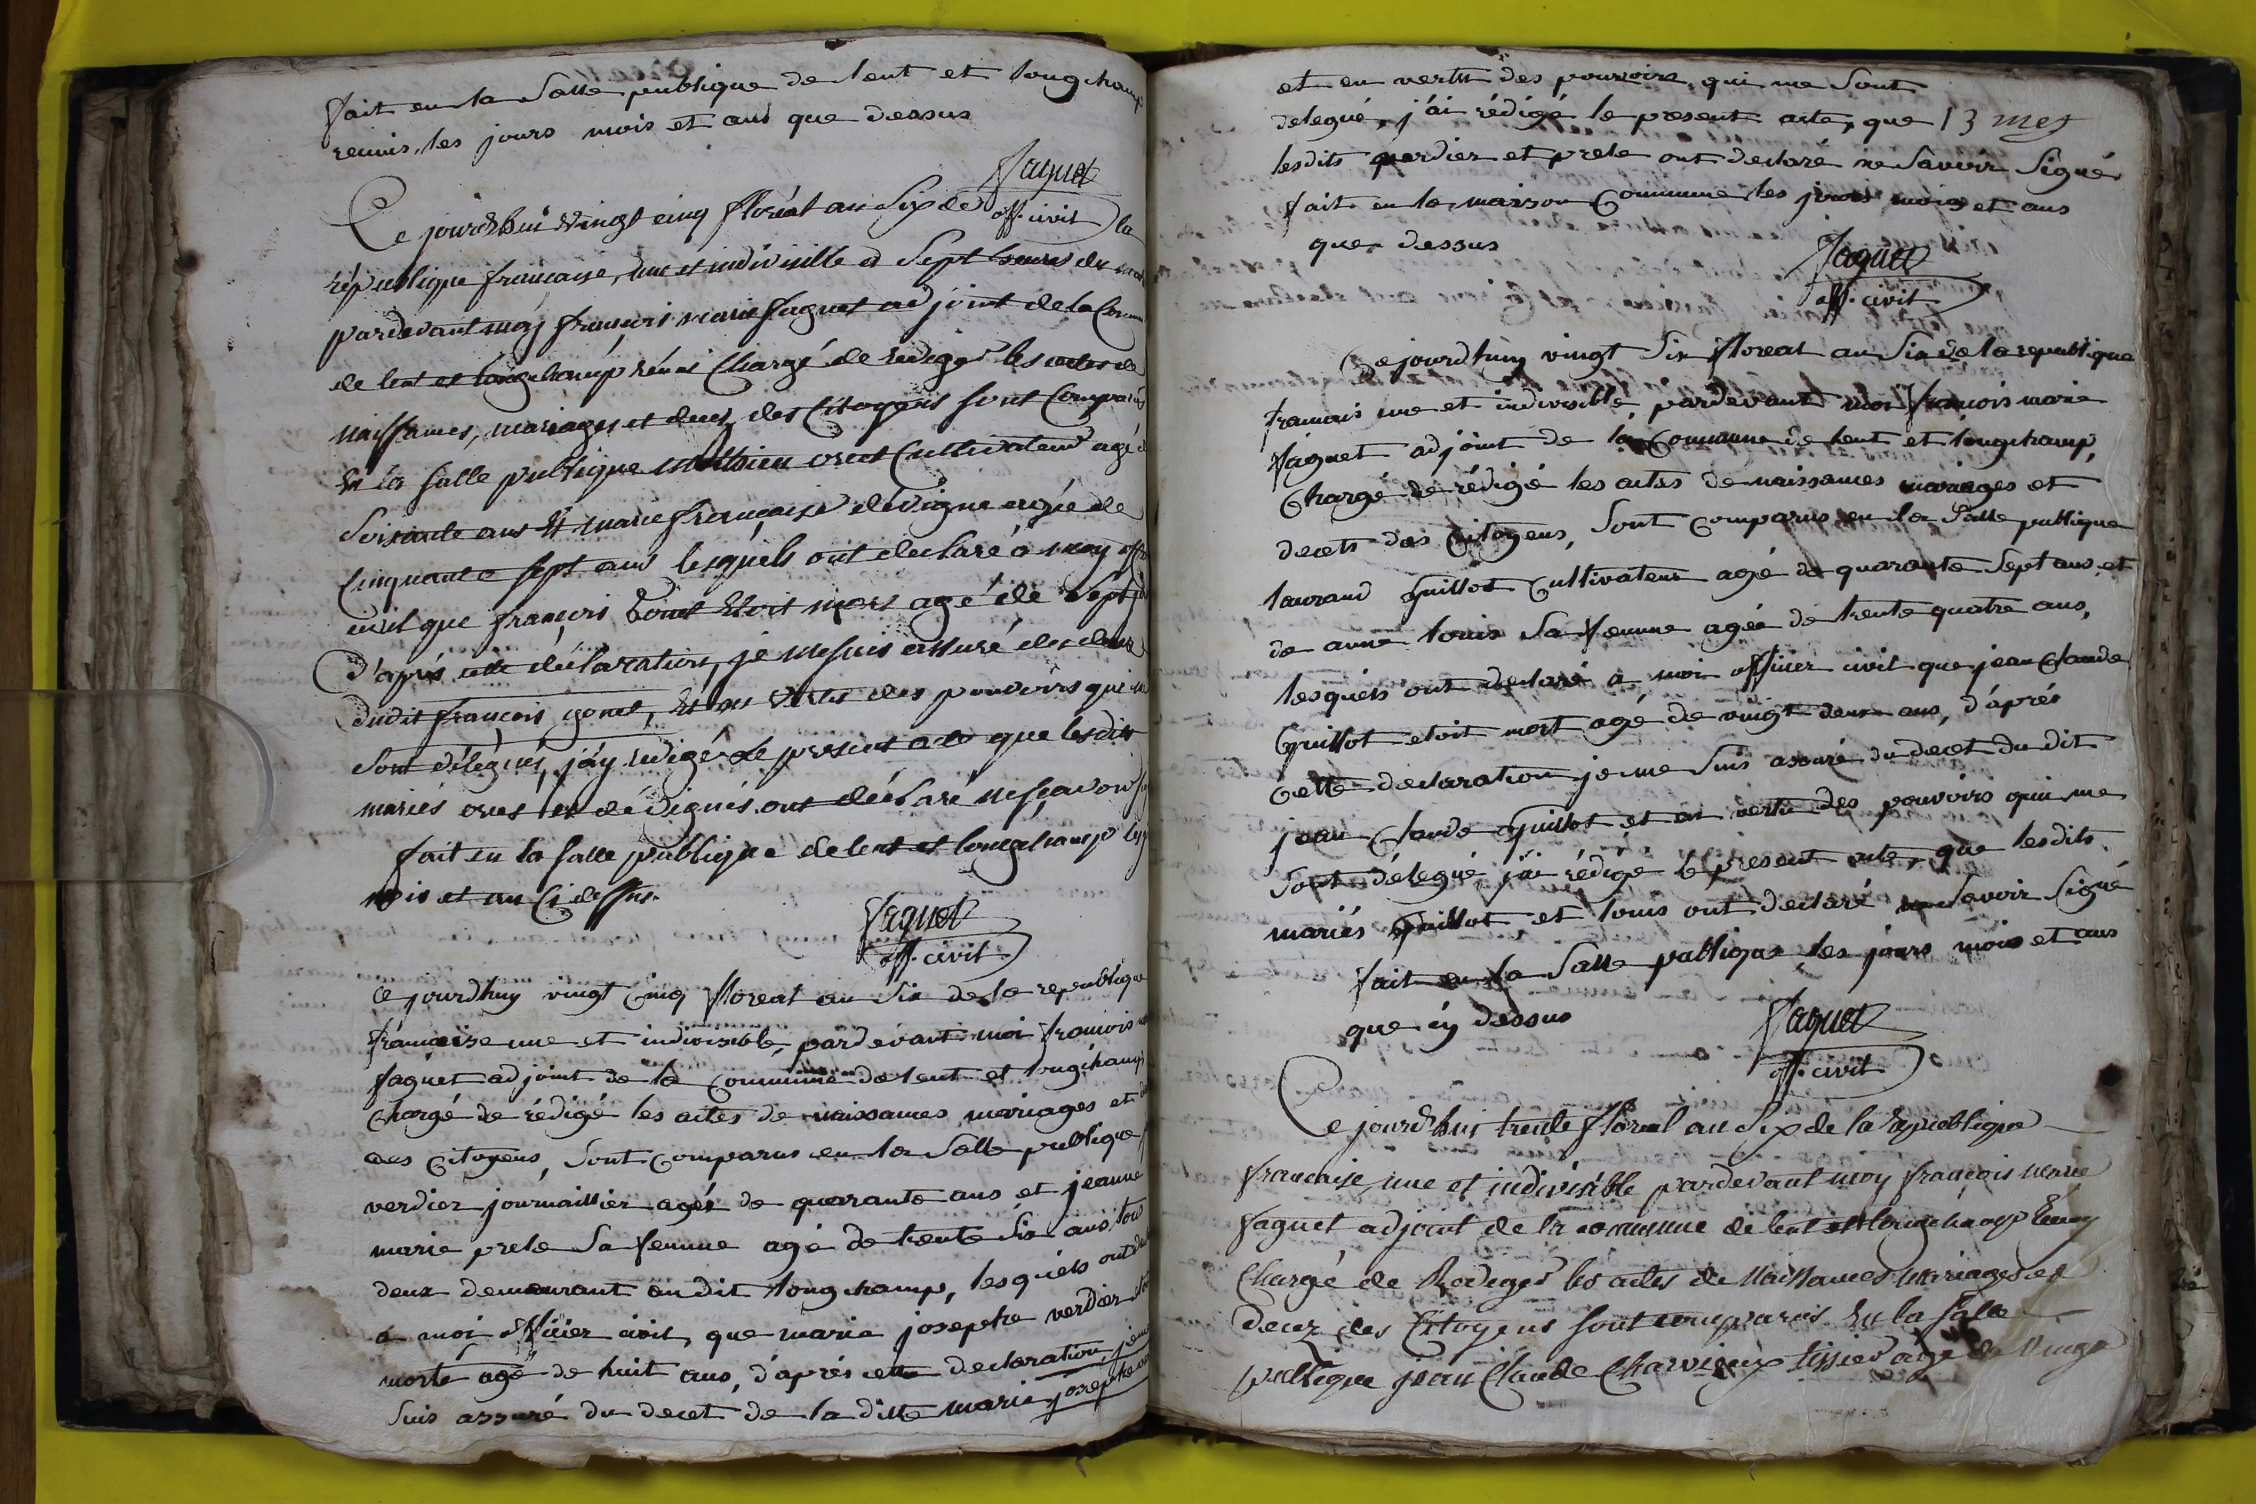 fait en la Salle publique de lent et longchamp
reunis, les jours mois et ans que dessus
faguet
off. civil
Ce jourdhui vingt cinq floréal an Six de la
république francaise, une et indivisible a Sept heures du
pardevant moy francois marie faguet adjoint de la
de lent et longchamp réuni Chargé de rediger les actes de
naissances, mariages et deces des Citoyens sont Comparus
En la salle publique cultivateur agé
Soixante ans Et marie francoise devigne agée de
Cinquante sept ans lesquels ont declaré a moy
civil que francois Etoit mort agé de Sept
D'après cette déclaration, je me suis assuré du
dudit francois gonet, Et en Vertu des pouvoirs qui
Sont délégués, j'ay redigé Le present acte que lesdits
mariés ont déclaré ne scavoir
fait en la salle publique de lent et longchamp
mois et an Ci dessus.
faguet
off. civil
Ce jourdhuy vingt Cinq floreal an Six de la republique
francaise une et indivisible, pardevant moi francois
faguet adjoint de la Commune de lent et longchamp
Chargé de rédigé les actes de naissances mariages et
des Citoyens, Sont Comparus en la Salle publique
verdier journaillier agés de quarante ans et jeanne
marie prele Sa femme agé de trente Six ans tou
deux demeurant au dit longchamp, lesquels ont
a moi officier civil, que marie josephte verdier
morte agé de huit ans, d'après cette declaration, je
Suis assuré du decet de la ditte marie josephte
et en vertu des pouvoirs, qui me Sont
delegué, j'ai rédigé le present acte, que 13 mes
lesdits verdier et prele ont declaré ne Savoir Signé
fait en la maison Commune les jours mois et ans
que dessus
faguet
off. civil
Ce jourdhuy vingt Six floreal an Six de la republique
francais une et indivisible, pardevant moi francois marie
faguet adjoint de la Commune de lent et longchamp,
Chargé de rédigé les actes de naissances mariages et
decets des Citoyens, Sont Comparus en la Salle publique
laurand Guillot Cultivateur agé de quarante Sept ans et
de anne louis Sa femme agée de trente quatre ans,
lesquels ont declaré a moi officier civil que jean Claude
Guillot etoit mort agé de vingt deux ans, d'après
Cette declaration je me Suis assuré du decet du dit
jean Claude Guillot et en vertu des pouvoirs qui me
Sont délegué j'ai rédigé le present acte, que lesdits
mariés Guillot et louis ont declaré ne Savoir Signé
fait en la Salle publique les jours mois et ans
que cy dessus
faguet
off. civil
Ce jourdhui trente floreal an Six de la République
francaise une et indivisible pardevant moy francois marie
faguet adjoint de la commune de lent et longchamp
Chargé de Rediger les actes de Naissances mariages et
decez des Citoyens sont comparus En la salle
publique jean Claude Charvieux tissier agé de Vingt